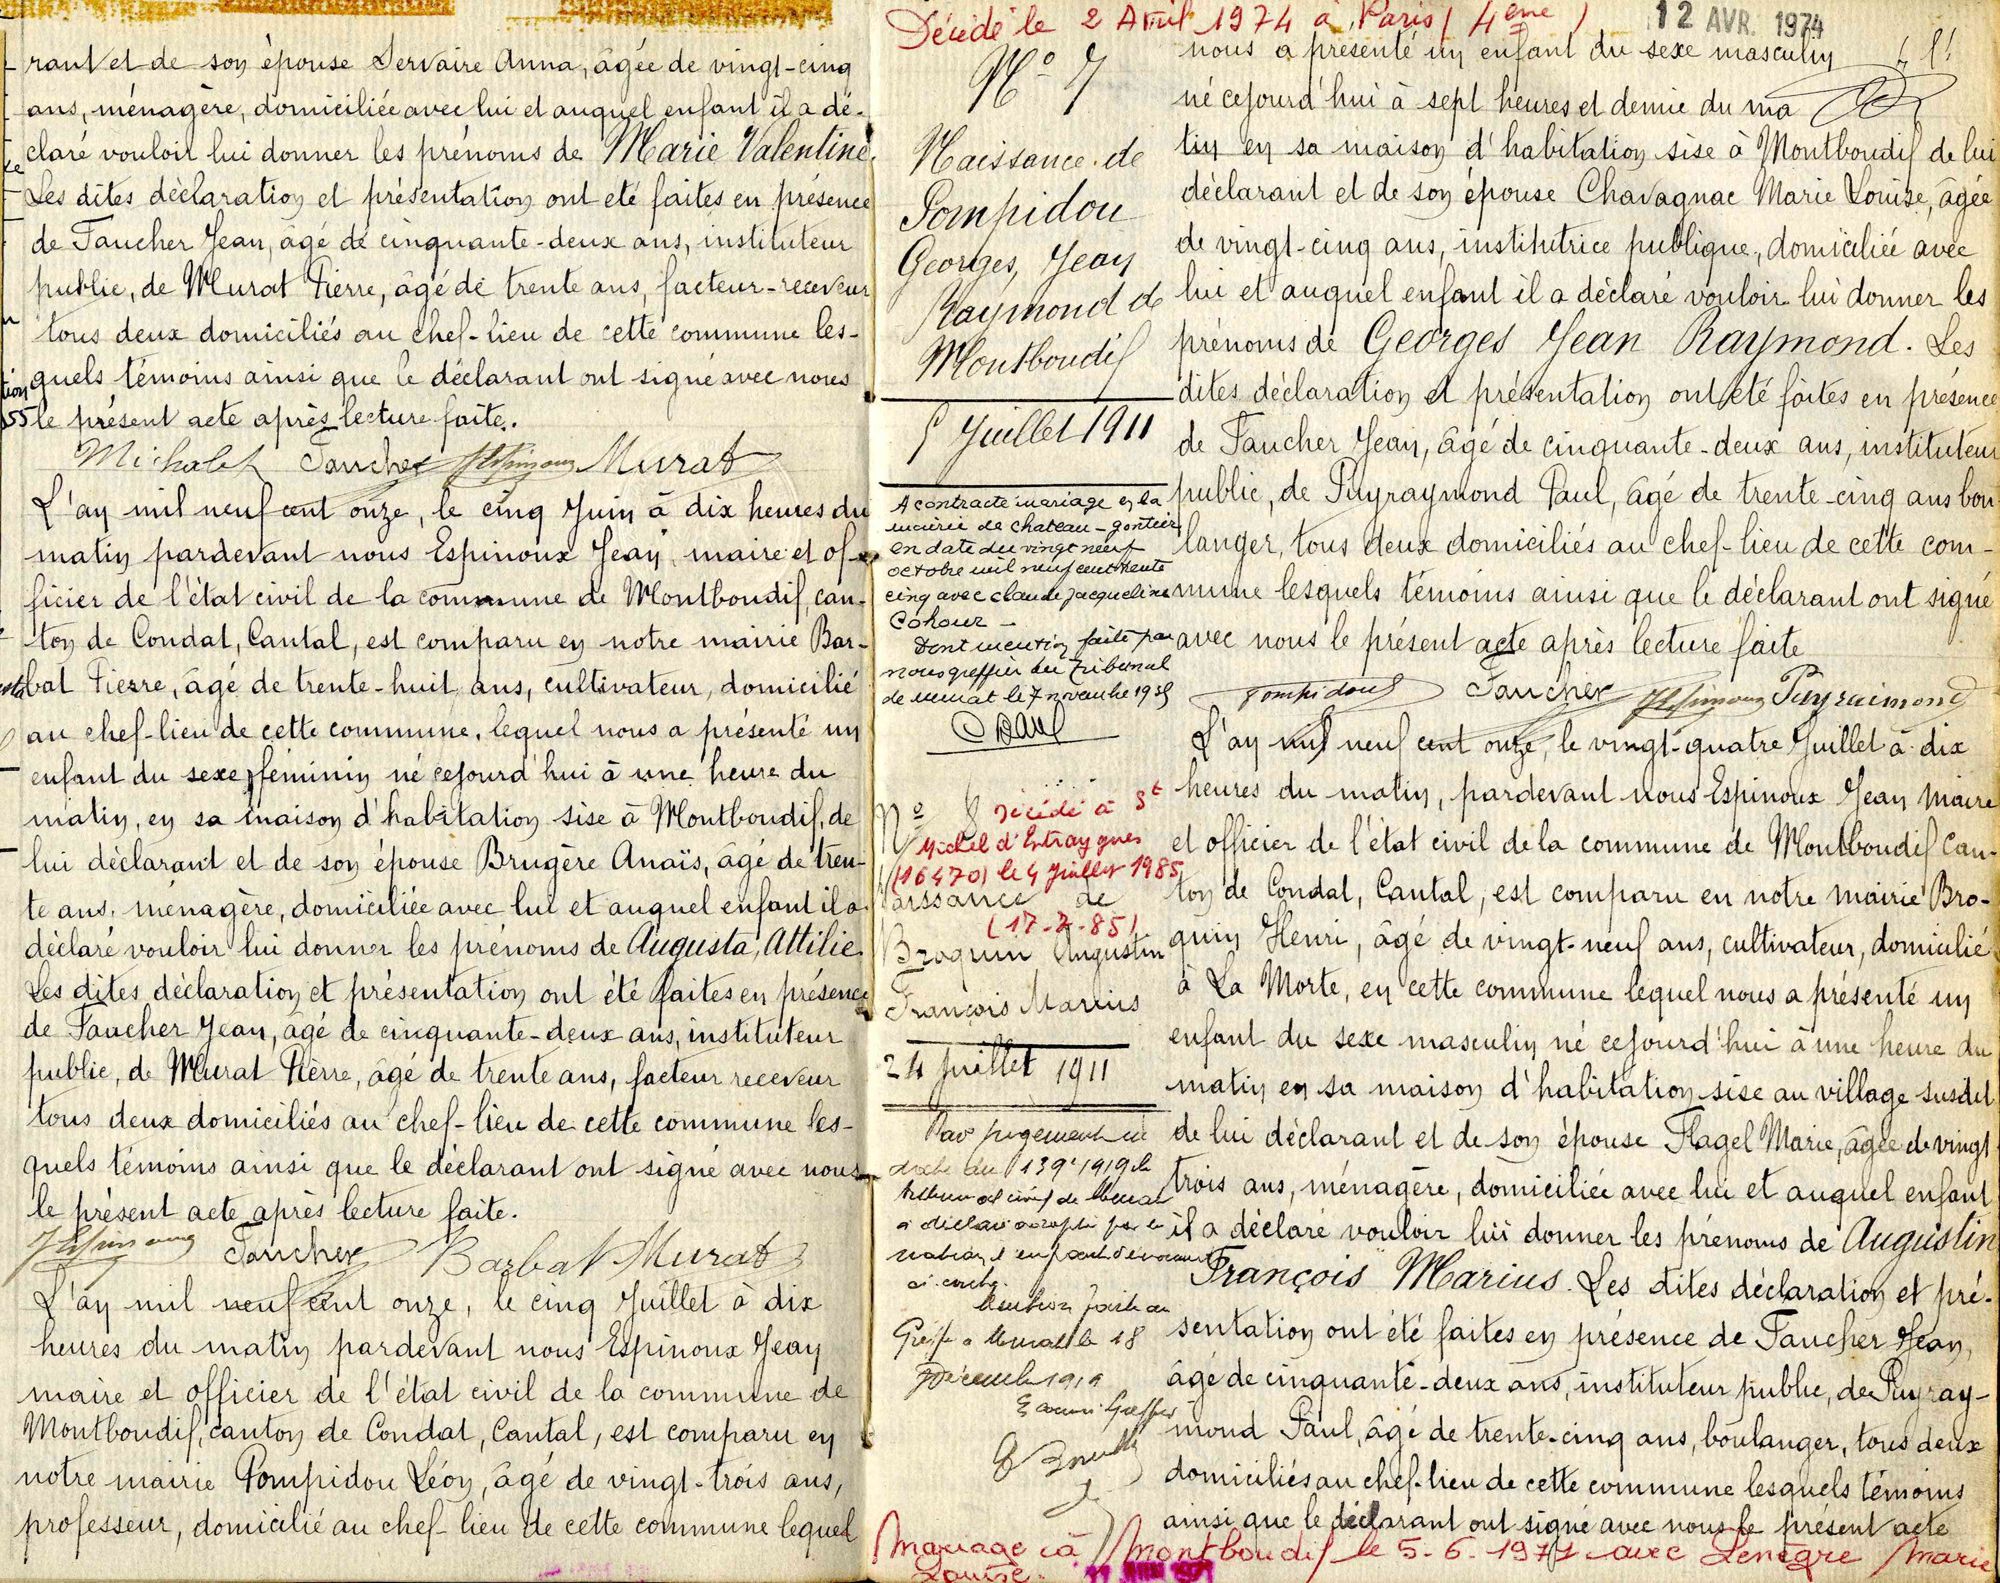 rant et de son épouse Servaire Anna, âgée de vingt-cinq
ans, ménagère, domiciliée avec lui et auquel enfant il a dé-
claré vouloir lui donner les prénoms de Marie Valentine.
Les dites déclaration et présentation ont été faites en présence
de Faucher Jean, âgé de cinquante-deux ans, instituteur
public, de Murat Pierre, âgé de trente ans, facteur-receveur
tous deux domiciliés au chef-lieu de cette commune les-
quels témoins ainsi que le déclarant ont signé avec nous
le présent acte après lecture faite.
Michalet Faucher JEspinoux Murat
L'an mil neuf cent onze, le cinq Juin à dix heures du
matin pardevant nous Espinoux Jean, maire et of-
ficier de l'état civil de la commune de Montboudif, can-
ton de Condat, Cantal, est comparu en notre mairie Bar-
bat Pierre, âgé de trente-huit ans, cultivateur, domicilié
au chef-lieu de cette commune, lequel nous a présenté un
enfant du sexe féminin né cejourd'hui à une heure du
matin, en sa maison d'habitation sise à Montboudif, de
lui déclarant et de son épouse Brugère Anaïs, âgé de tren-
te ans, ménagère, domiciliée avec lui et auquel enfant il a
déclaré vouloir lui donner les prénoms de Augusta, Attilie.
Les dites déclaration et présentation ont été faites en présence
de Faucher Jean, âgé de cinquante-deux ans, instituteur
public, de Murat Pierre, âgé de trente ans, facteur receveur
tous deux domiciliés au chef-lieu de cette commune les-
quels témoins ainsi que le déclarant ont signé avec nous
le présent acte après lecture faite.
JEspinoux Faucher Barbat Murat
L'an mil neuf cent onze, le cinq Juillet à dix
heures du matin pardevant nous Espinoux Jean
maire et officier de l'état civil de la commune de
Montboudif, canton de Condat, Cantal, est comparu en
notre mairie Pompidou Léon, âgé de vingt-trois ans,
professeur, domicilié au chef-lieu de cette commune lequel
Décédé le 2 Avril 1974 à Paris (4ème)
12 AVR. 1974
N° 7
Naissance de
Pompidou
Georges, Jean
Raymond de
Montboudif
5 Juillet 1911
A contracté mariage en la
mairie de chateau-gontier
en date du vingt neuf
octobre mil neuf cent trente
cinq avec claude jacqueline
Cahour -
Dont mention faite par
nous greffier du tribunal
de murat le 7 novembre 1935
N° 8
Décédé à St
Michel d'Entraygues
(16470) le 4 Juillet 1985
Naissance de
(17-7-85)
Broquin Augustin
François Marius
24 Juillet 1911
Par jugement en
date du 13 9e 1919 le
tribunal civil de Murat
a déclaré adopté par la
nation l'enfant dénommé
ci-contre.
Mention faite au
Greffe à Murat le 18
Décembre 1919
nous a présenté un enfant du sexe masculin
né cejourd'hui à sept heures et demie du ma
tin en sa maison d'habitation sise à Montboudif de lui
déclarant et de son épouse Chavagnac Marie Louise, âgée
de vingt-cinq ans, institutrice publique, domiciliée avec
lui et auquel enfant il a déclaré vouloir lui donner les
prénoms de Georges Jean Raymond. Les
dites déclaration et présentation ont été faites en présence
de Faucher Jean, âgé de cinquante-deux ans, instituteur
public, de Puyraymond Paul, âgé de trente-cinq ans bou-
langer, tous deux domiciliés au chef-lieu de cette com-
mune lesquels témoins ainsi que le déclarant ont signé
avec nous le présent acte après lecture faite
Pompidou Faucher JEspinoux Puyraimond
L'an mil neuf cent onze, le vingt-quatre Juillet à dix
heures du matin, pardevant nous Espinoux Jean maire
et officier de l'état civil de la commune de Montboudif Can-
ton de Condat, Cantal, est comparu en notre mairie Bro-
quin Henri, âgé de vingt-neuf ans, cultivateur, domicilié
à La Morte, en cette commune lequel nous a présenté un
enfant du sexe masculin né cejourd'hui à une heure du
matin en sa maison d'habitation sise au village susdit
de lui déclarant et de son épouse Flagel Marie, âgée de vingt
trois ans, ménagère, domiciliée avec lui et auquel enfant
il a déclaré vouloir lui donner les prénoms de Augustin
François Marius. Les dites déclaration et pré-
sentation ont été faites en présence de Faucher Jean,
âgé de cinquante-deux ans, instituteur public, de Puyray-
mond Paul, âgé de trente-cinq ans, boulanger, tous deux
domiciliés au chef-lieu de cette commune lesquels témoins
ainsi que le déclarant ont signé avec nous le présent acte
Mariage à Montboudif le 5-6-1971 avec Lenègre Marie
Louise.